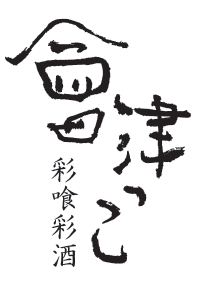 會津っこ
彩喰彩酒